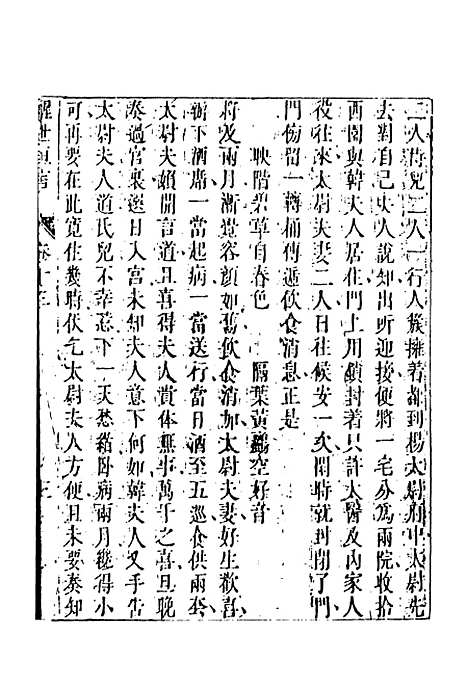 二人得見二人一行人簇擁着都到楊太尉府中太尉先
去對自己夫人說知出㕔迎接便將一宅分為兩院收拾
西園與韓夫人居住門上用鎖封着只許太醫及內家人
役往來太尉夫妻二人日往候安一次閒時就封閉了門
門傍留一轉桶傳遞飲食消息正是
映階碧草自春色　隔葉黃鸝空好音
將及兩月漸覺容顏如舊飲食稍加太尉夫妻好生歡喜
辦下酒席一當起病一當送行當日酒至五巡食供兩套
太尉夫人開言道且喜得夫人貴體無事萬千之喜旦晚
奏過官裏選日入宮未知夫人意下何如韓夫人叉手告
太尉夫人道氏兒不幸惹下一天愁緒臥病兩月纔得小
可再要在此寬住幾時伏乞太尉夫人方便且未要奏知
醒世恒言　卷十三